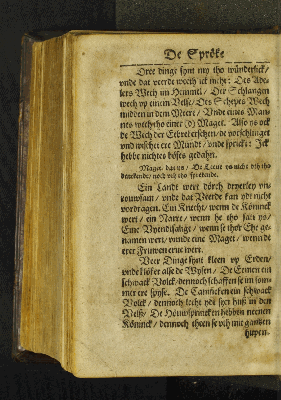 De Spröke
Dree dinge synt my tho wünderlick/
vnde dat veerde weeth ick nicht: Des Ade-
lers Wech im Hemmel/ Der Schlangen
wech vp einem Velse/ Des Schepes Wech
midden in dem Meere/ Vnde eines Man-
nes wech tho einer (d) Maget. Also ys ock
de Wech der Eebrekerschen/ de vorschlinget
vnd wischet ere Mundt/ vnde spricket: Ick
hebbe nichtes böses gedahn.
Maget/ dat ys/ De Leue ys nicht vth tho
denckende/ noch vth tho sprekende.
Ein Landt wert dörch dryerley vn-
rouwsam/ vnde dat Veerde kan ydt nicht
vordragen. Ein Knecht/ wenn he Köninck
wert/ ein Narre/ wenn he tho satt ys/
Eine Vyendtsalige/ wenn se thor Ehe ge-
namen wert/ vnnde eine Maget/ wenn de
erer Fruwen erue wert.
Veer Dinge synt kleen vp Erden/
vnde klöker alse de Wysen/ De Eemten ein
schwack Volck/ dennoch schaffen se im som-
mer ere spyse. De Caninken ein schwack
Volck/ dennoch lecht ydt syn huß in den
Velß/ De Höuwspringken hebben neenen
Köninck/ dennoch theen se vth mit gantzen
hupen-